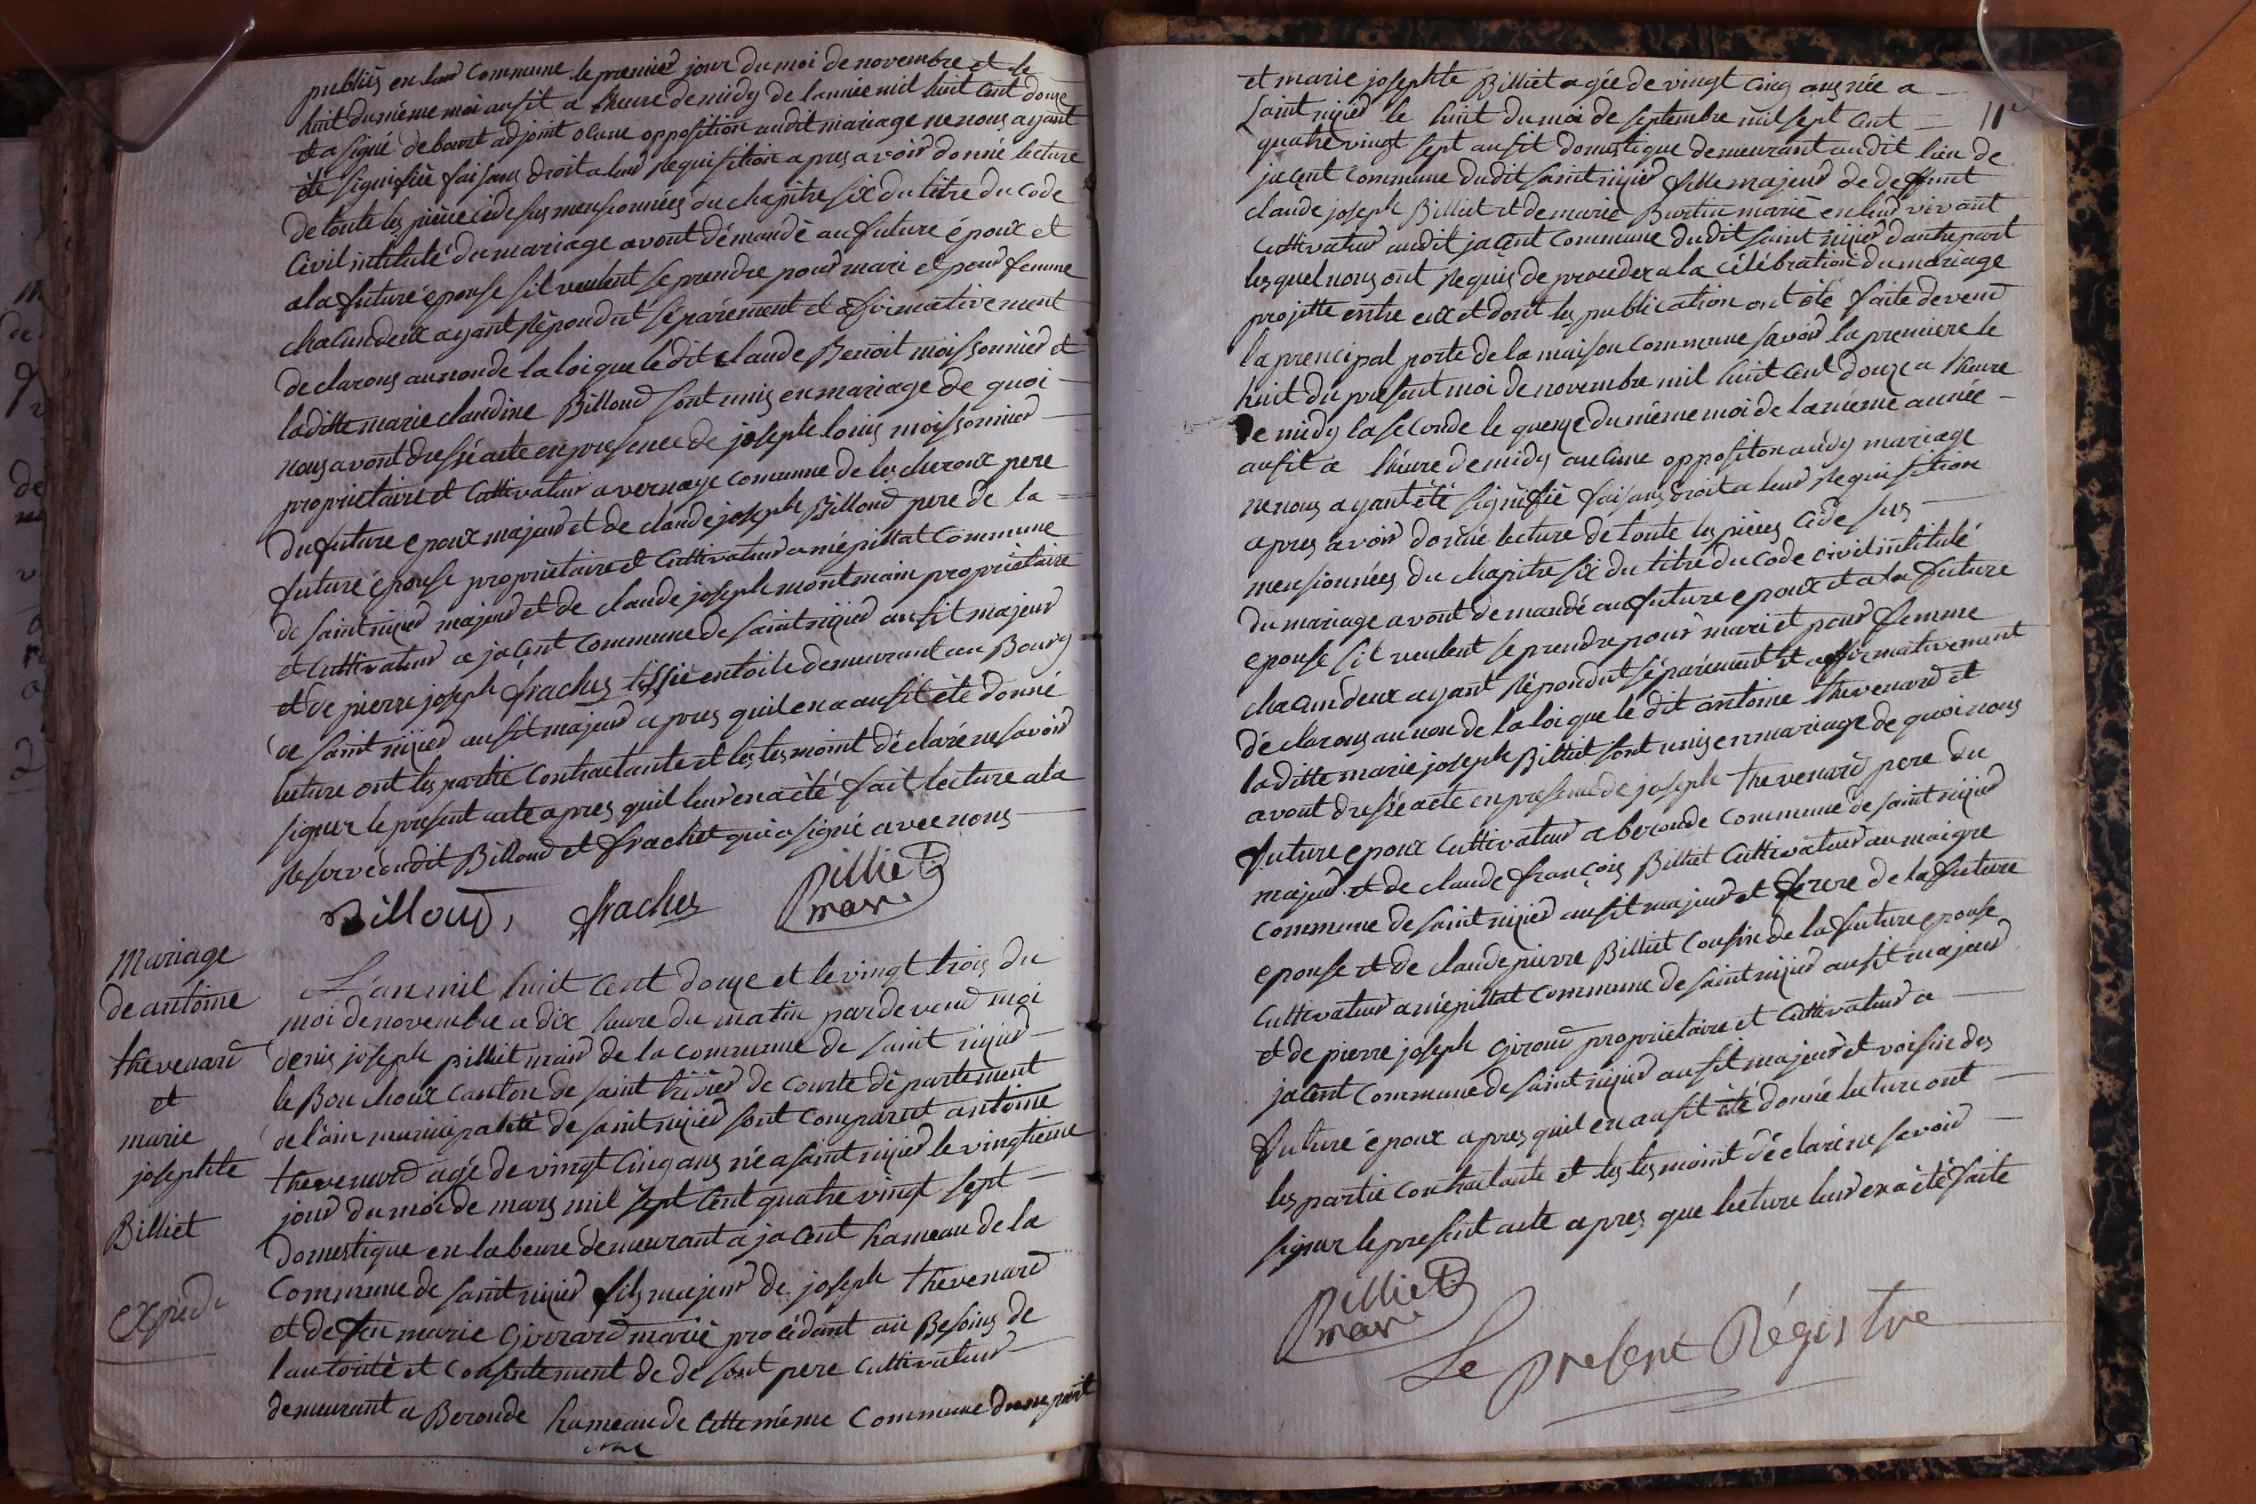 publiés en leur Commune le premier jour du moi de novembre et le
huit du méme moi ausit a lheure de midy de lannée mil huit Cent douze
et a signé debourt adjoint oCune opposition audit mariage ne nous ayant
été signifiée faisans droit a leur Requisition apres avoir donné lecture
de toute les pièce cidesus mensionnées du chapitre six du titre du Code
Civil intitulé du mariage avont démandè au future époux et
a la future épouse sil veulent se prendre pour mari et pour femme
chacun deux ayant Répondut séparément et afirmativement
declarons au nonde la loi que le dit Claude Benoit moissonnier et
laditte marie claudine Billoud sont unis en mariage de quoi
nous avont dressé acte en presence de joseph louis moissonnier
proprietaire et Cultivateur a vernaye comunne de les cheroux pere
du future epoux majeur et de claude joseph Billoud pere de la
future épouse proprietaire et Cultivateur a mépillat Commune
de saint nizier majeur et de claude joseph montmain proprietaire
et Cultivateur a jaçent Commune de saint nizier ausit majeur
et de pierre joseph frachet tissié entoile demeurant au Bourg
de saint nizier ausit majeur apres quil en a ausit été donné
lecture ont les partie Contractante et les tesmoint déclaré ne savoir
signer le present acte apres quil leur en a été fait lecture a la
Reserve dudit Billoud et frachet qui a signé avec nous
Billoud, frachet Billiet
mar
Mariage
de antoine
thevenard
et
marie
josephte
Billiet
Expéd
L'an mil huit Cent douze et le vingt trois du
moi de novembre a dix heure du matin pardeveud moi
denis joseph pilliet mair de la commune de saint nizier
le Bouchoux canton de saint trivier de Courte département
de l'ain municipalité de saint nizier sont comparut antoine
thevenard agé de vingt Cinq ans né a saint nizier le vingtieme
jour du moi de mars mil sept Cent quatre vingt sept
domestique en labeure demeurant a jaCent hameau de la
Commune de saint nizier fils majeur de joseph thevenard
et de feu marie Girrard marié procédant au Besoins de
lautorité et Consentement de de sont pere Cultivateur
demeurant a Beronde hameau de Cette méme Commune dune part
une
11
et marie josephte Billiet agée de vingt Cinq ans née a
saint nizier le huit du moi de septembre mil sept Cent
quatre vingt sept ausit domestique demeurant audit lieu de
jaçent Commune dudit saint nizier fille majeur de deffunt
claude joseph Billiet et de marie Burtin marié en leur vivant
Cultivateur audit jaçent Commune dudit saint nizier dautre part
lesquel nous ont Requis de proceder a la Célébration du mariage
projette entre eux et dont les publication ont été faite deveud
la prencipal porte de la maison Commune savoir la premiere le
huit du present moi de novembre mil huit Cent douze a lheure
de midy la seConde le quenze du méme moi de la méme année
ausit a lheure de midy auCune oppositon audy mariage
ne nous ayant été signifié faisans droit a leur Requisition
apres avoir donné lecture de toute les pièces Cidesus
mensionnées du chapitre six du titre du Code civil intitulé
du mariage avont demandé au future epoux et a la future
epouse sil veulent se prendre pour mari et pour femme
chacun deux ayant Répondut séparément et affirmativement
déclarons au non de la loi que le dit antoine thevenard et
laditte marie joseph Billiet sont unis en mariage de quoi nous
avont dressé acte en presence de joseph thevenard pere du
future epoux Cultivateur a beronde Commune de saint nizier
majeur et de claude françois Billiet Cultivateur au maigre
Commune de saint nizier ausit majeur et frere de la future
epouse et de claude pierre Billiet Cousin de la future epouse
Cultivateur a mépillat Commune de saint nizier ausit majeur
et de pierre joseph Giroud proprietaire et Cultivateur a
jaCent Commune de saint nizier ausit majeur et voisin des
future époux apres quil en ausit été donné lecture ont
les partie contractante et les tesmoint déclaré ne savoir
signer le present acte apres que lecture leur en a été faite
Billiet
mar
Le present Régistre